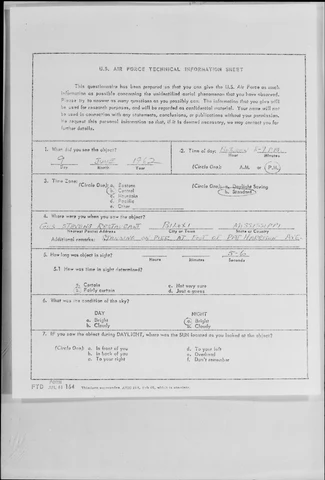 U.S. AIR FORCE TECHNICAL INFORMATION SHEET
This questionnaire has been prepared so that you can give the U.S. Air Force as much
information as possible concerning the unidentified aerial phenomenon that you have observed.
Please try to answer as many questions as you possibly can. The information that you give will
be used for research purposes, and will be regarded as confidential material. Your name will not
be used in connection with any statements, conclusions, or publications without your permission.
We request this personal information so that, if it is deemed necessary, we may contact you for
further details.
1. When did you see the object?
9 June 1962
Day Month Year
2. Time of day:
Hour Minutes
(Circle One): A.M. or P.M.
3. Time Zone:
(Circle One): a. Eastern
b. Central
c. Mountain
d. Pacific
e. Other
(Circle One): a. Daylight Saving
b. Standard
4. Where were you when you saw the object?
RESTAURANT BILOXI MISSISSIPPI
Nearest Postal Address City or Town State or County
Additional remarks: ON PIER AT
5. How long was object in sight? 5-6
Hours Minutes Seconds
5.1 How was time in sight determined?
a. Certain c. Not very sure
b. Fairly certain d. Just a guess
6. What was the condition of the sky?
DAY NIGHT
a. Bright a. Bright
b. Cloudy b. Cloudy
7. IF you saw the object during DAYLIGHT, where was the SUN located as you looked at the object?
(Circle One): a. In front of you d. To your left
b. In back of you e. Overhead
c. To your right f. Don't remember
FTD 164